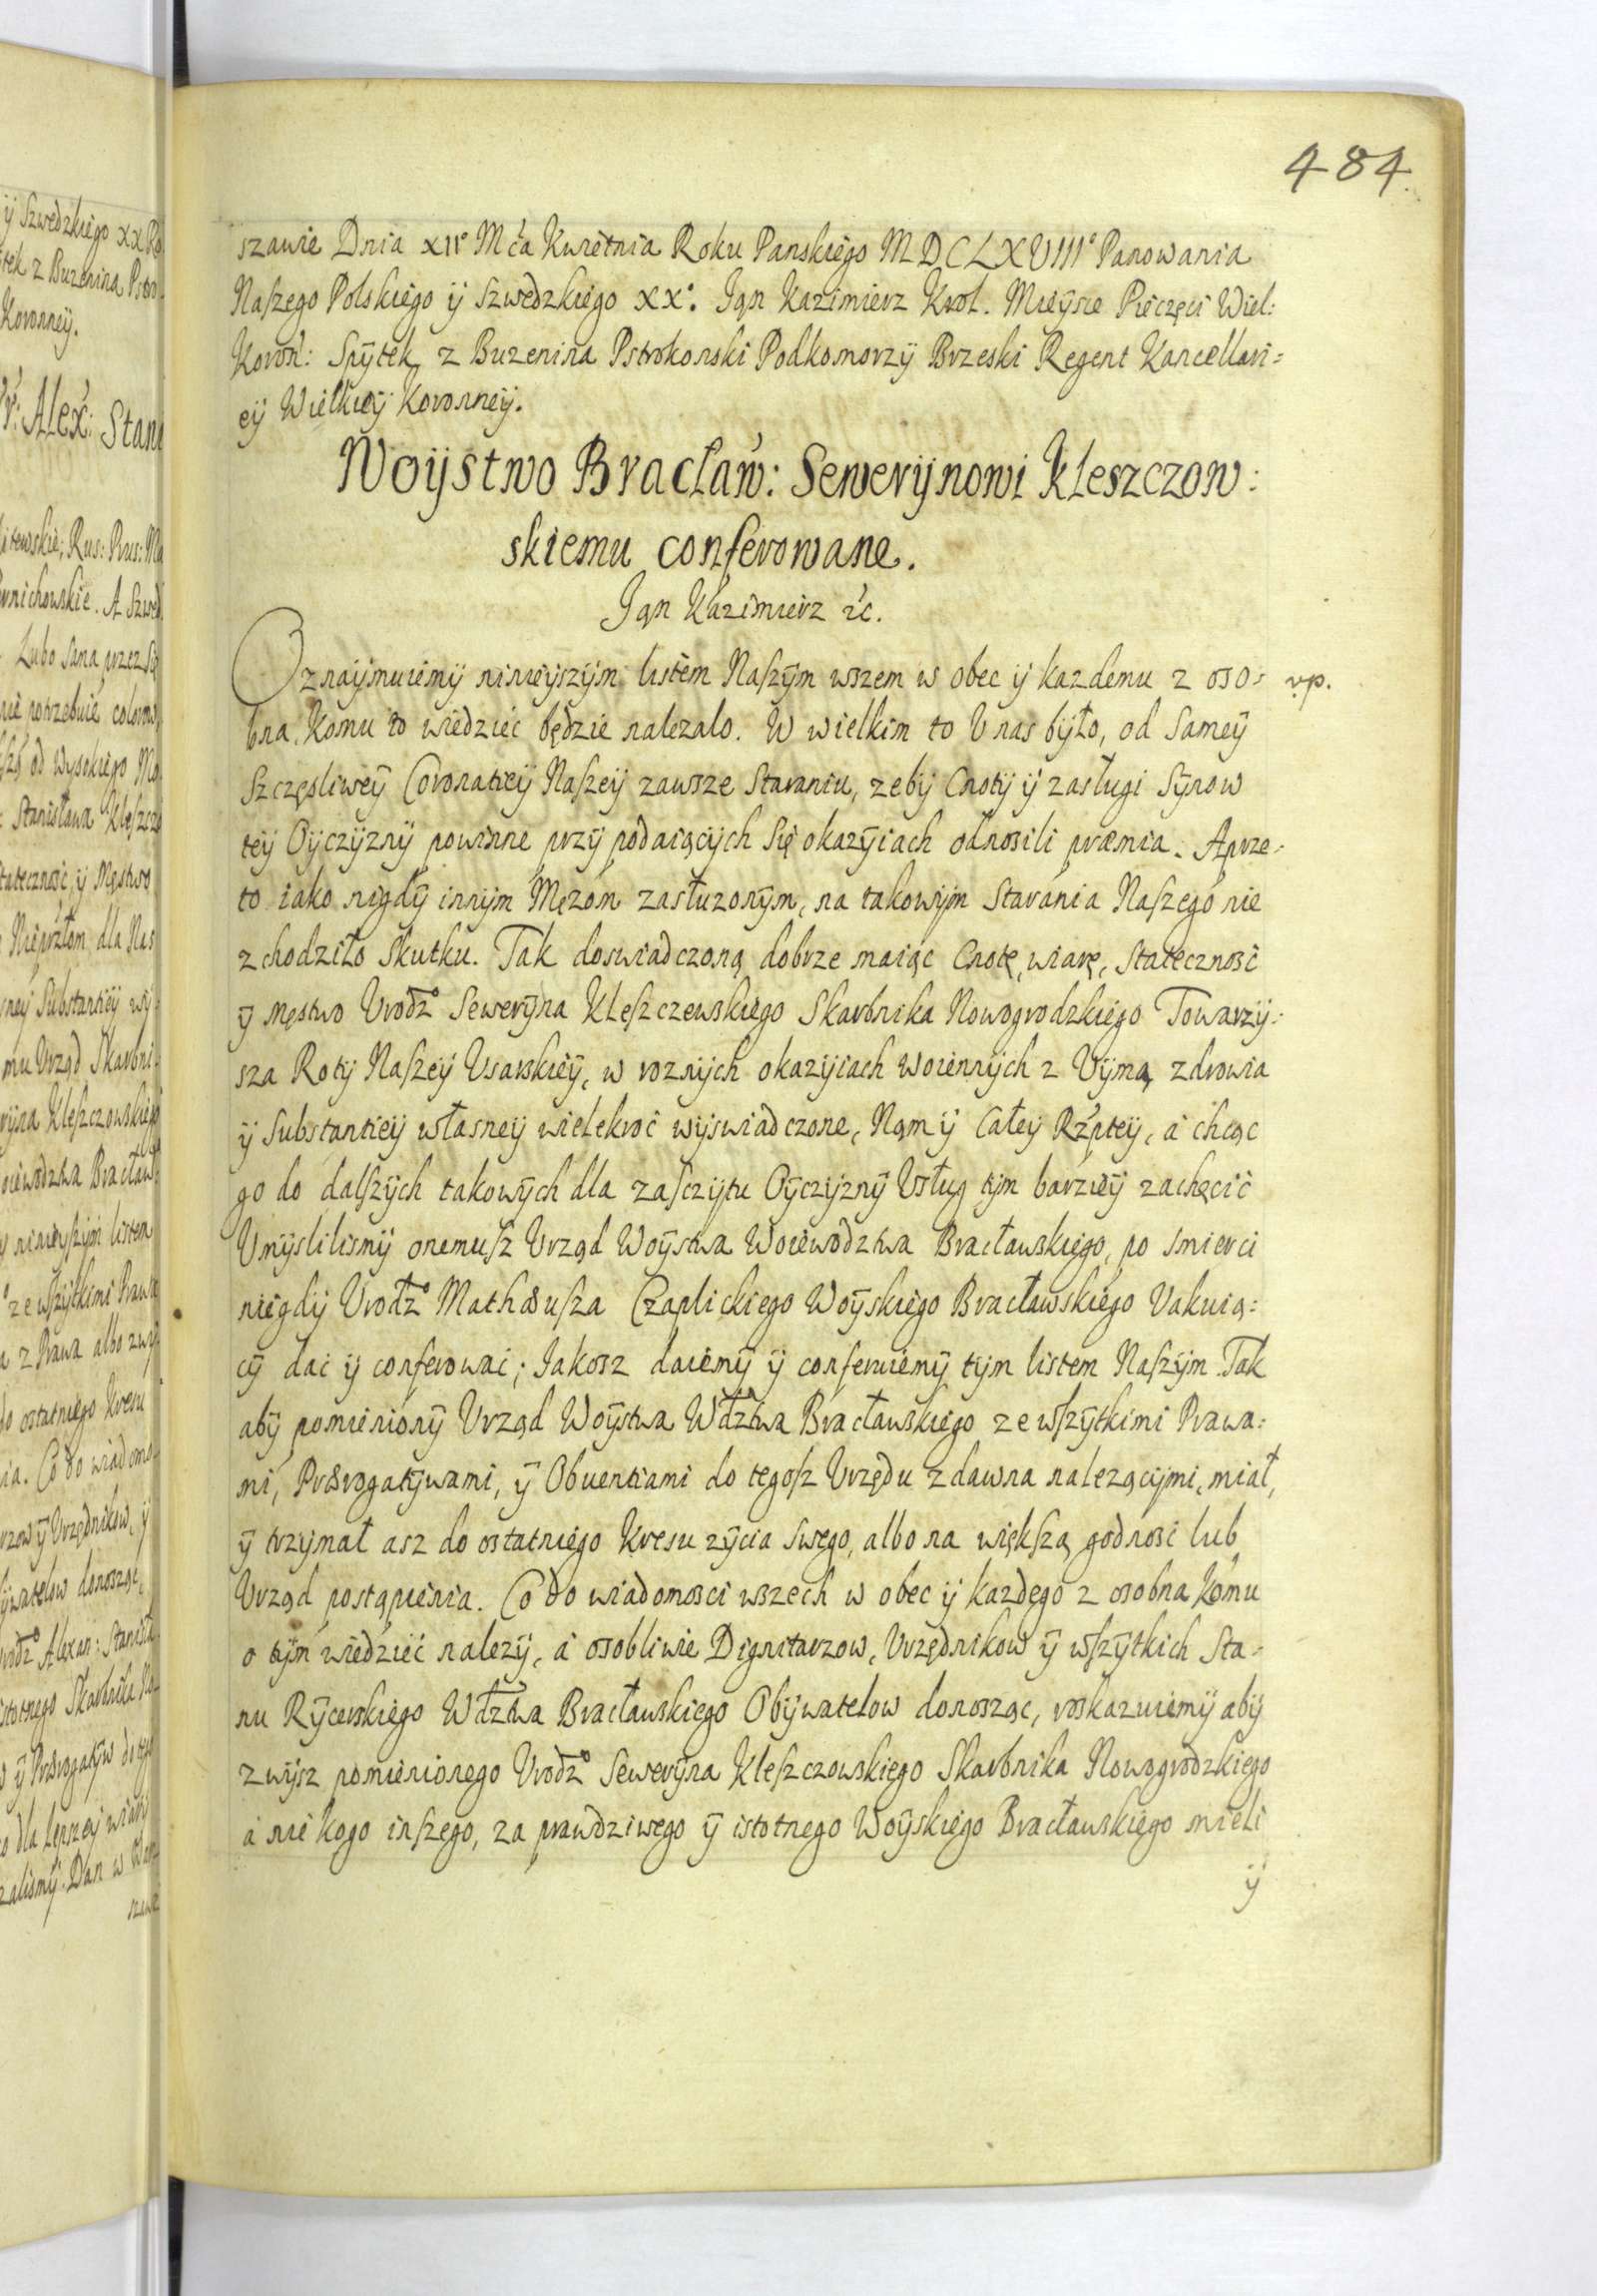 484.
szawie Dnia XII° Mća Kwietnia Roku Panskiego MDCLXVIII° Panowania
Naszego Polskiego ÿ Szwedzkiego XX°. Jan Kazimierz Krol. Mieÿsce Pieczęci Wiel:
Koron: Spÿtek z Buzenina Pstrokonski Podkomorzÿ Brzeski Regent Kancellari=
eÿ Wielkieÿ Koronneÿ.
Woÿstwo Bracław: Sewerÿnowi Kleszczow:
skiemu conferowane.
Jan Kazimierz &c.
Oznaÿmuiemÿ ninieÿszÿm listem Naszÿm wszem w obec ÿ kazdemu z oso= vp.
bna, Komu to wiedziec będzie nalezalo. W wielkim to U nas bÿło, od Sameÿ
Szczęsliweÿ Coronatieÿ Naszeÿ zawsze Staraniu, zebÿ Cnotÿ ÿ zasługi Sÿnow
teÿ Oÿczÿznÿ powinne przÿ podaiącÿch Się okazÿiach odnosili præmia. Aprze=
to iako nigdÿ innÿm Męzom zasłuzonÿm, na takowÿm Starania Naszego nie
zchodziło Skutku. Tak doswiadczoną dobrze maiąc Cnotę, wiarę, Stateczność
ÿ męstwo Urodz° Sewerÿna Kleszczewskiego Skarbnika Nowogrodzkiego Towarzÿ=
sza Rotÿ Naszeÿ Usarskieÿ, w roznÿch okazÿiach woiennÿch z Uÿmą zdrowia
ÿ Substantieÿ własneÿ wielekroć wÿswiadczone, Nam ÿ Całeÿ Rzpteÿ, a chcąc
go do dalszÿch takowÿch dla zaszczÿtu Oÿczÿznÿ Usług tÿm barzieÿ zachęcić
Umÿslilismÿ onemusz Urząd Woÿstwa Woiewodztwa Bracławskiego, po smierci
niegdÿ Urodz° Mathæusza Czaplickiego Woÿskiego Bracławskiego Vakuią=
cÿ dac ÿ conferowac; Jakosz daiemÿ ÿ conferuiemÿ tÿm listem Naszÿm. Tak
abÿ pomienionÿ Urząd Woÿstwa Wdztwa Bracławskiego ze wszÿtkimi Prawa=
mi, Prærogatÿwami, ÿ Obuentiami do tegosz Urzędu zdawna nalezącÿmi, miał,
ÿ trzÿmał asz do ostatniego Kresu zÿcia swego, albo na większą godnosc lub
Urząd postąpienia. Co do wiadomosci wszech w obec ÿ kazdego z osobna Komu
o tÿm wiedzieć nalezÿ, a osobliwie Dignitarzow, Urzędnikow ÿ wszÿtkich Sta=
nu Rÿcerskiego Wdztwa Bracławskiego Obÿwatelow donosząc, roskazuiemÿ abÿ
zwÿsz pomienionego Urodz° Sewerÿna Kleszczowskiego Skarbnika Nowogrodzkiego
a nie kogo inszego, za prawdziwego ÿ istotnego Woÿskiego Bracławskiego mieli
ÿ